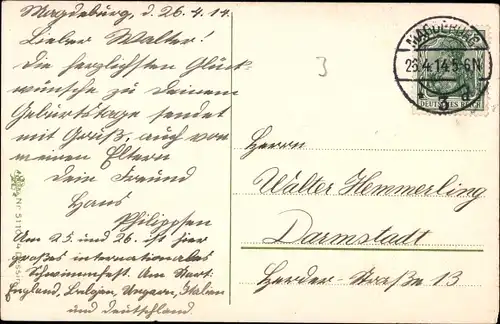 Magdeburg, d. 26.4.14.
Lieber Walter!
Die herzlichsten Glück-
wünsche zu Deinem
Geburtstage sendet
mit Gruß, auch von
meinen Eltern
Dein Freund
Hans
Philippsen
Am 25. und 26. ist hier
großes internationales
Schwimmfest. Am Start:
England, Belgien, Ungarn, Italien
und Deutschland.
3
MAGDEBURG
26.4.14.5-6N
DEUTSCHES REICH
Herrn
Walter Hemmerling
Darmstadt
Herder-Straße 13